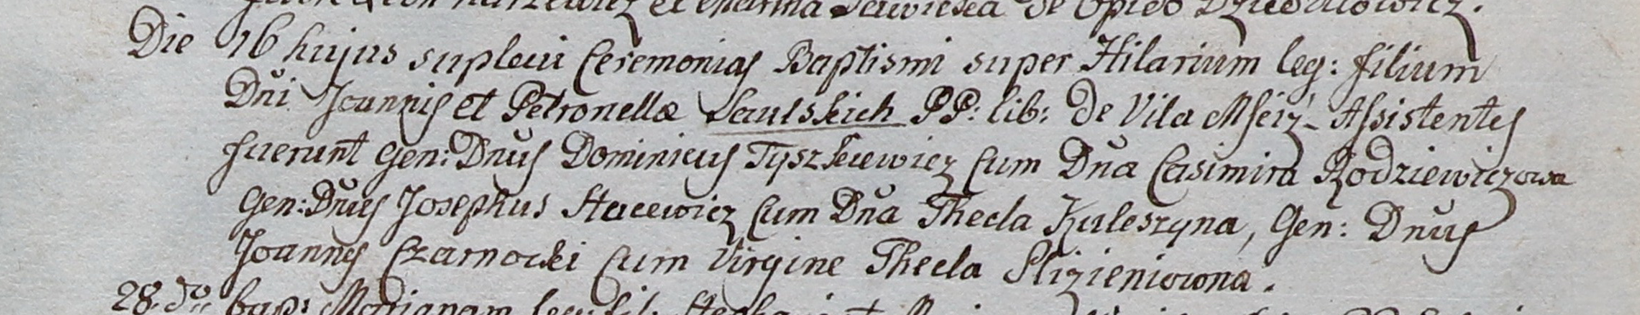 et de Opido
Die 16 hujus suplevi Ceremonias Baptismi super Hilarium leg: filium
Dni Joannis et Petronellæ Saulskich PP: lib: de Vila Assistentes
fuerunt Gen: Dnus Dominicus Tyszkiewicz cum Dna Casimira Rodziewiczowa
Gen: Dnus Josephus Stacewicz cum Dna Thecla Kuleszyna, Gen: Dnus
Joannes Czarnocki cum Virgine Thecla Slizieniowna.
28 do bap: Marianam leg: fil: